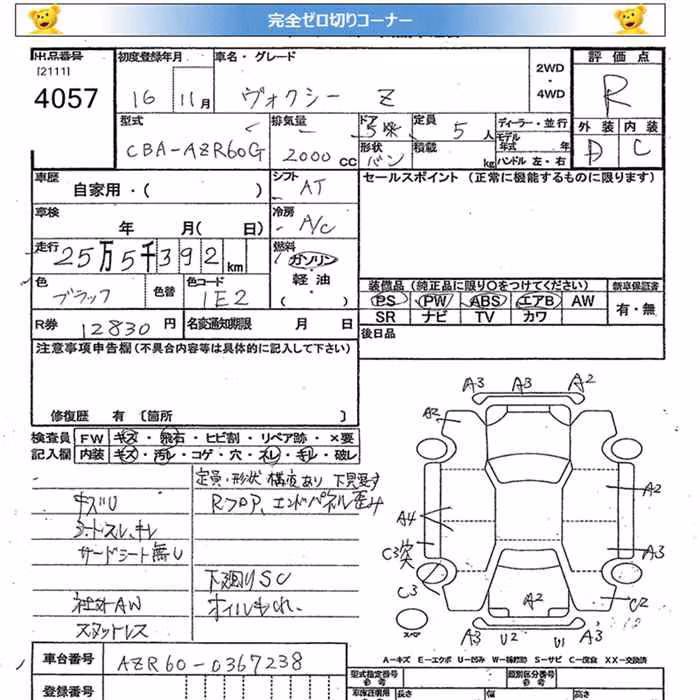 完全ゼロ切りコーナー
出品番号
[2111]
4057
初度登録年月
16年 11月
車名・グレード
ヴォクシー Z
2WD
・
4WD
評価点
R
外装 内装
D C
型式
CBA-AZR60G
排気量
2000 cc
ドア
5
形状
バン
定員
5 人
積載
kg
ディーラー・並行
モデル
年式 年
ハンドル 左・右
車歴
自家用・( )
シフト
AT
セールスポイント (正常に機能するものに限ります)
車検
年 月( 日)
冷房
A/C
走行
25万5千392 km
燃料
ガソリン
軽油
( )
色
ブラック
色替
色コード
1E2
装備品 (純正品に限り○をつけてください)
PS PW ABS エアB AW
SR ナビ TV カワ
新車保証書
有・無
R券 12830 円
名変通知期限 月 日
後日品
注意事項申告欄(不具合内容等は具体的に記入して下さい)
修復歴 有 〔箇所 〕
検査員 FW キズ・飛石・ヒビ割・リペア跡・×要
記入欄 内装 キズ・汚レ・コゲ・穴・スレ・キレ・破レ
定員・形状 構変あり 下見要す
Rフロア、エンドパネル歪み
キズU
シートスレ、キレ
サードシート無し
下廻りSC
オイルもれ、
社外AW
スタットレス
A3 A3 A2
A2
A2
A4
C3突
A3
C3
A2
C2
スペア
A3 U2 U1 A3
A-キズ E-エクボ U-凹み W-補修跡 S-サビ C-腐食 XX-交換済
車台番号 AZR60-0367238
登録番号
型式指定番号
参考
類別区分番号
参考
車庫証明用
参考
長さ
幅
高さ